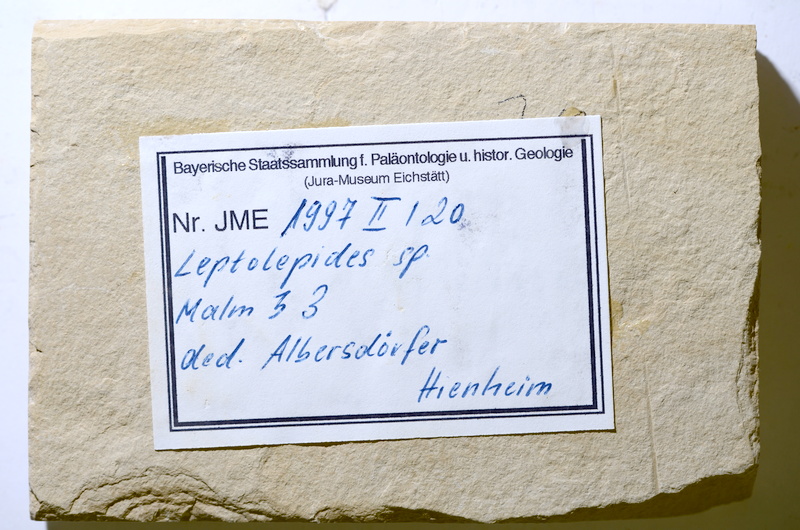 Bayerische Staatssammlung f. Paläontologie u. histor. Geologie
(Jura-Museum Eichstätt)
Nr. JME 1997 II / 20
Leptolepides sp.
Malm ζ 3
ded. Albersdörfer
Hienheim